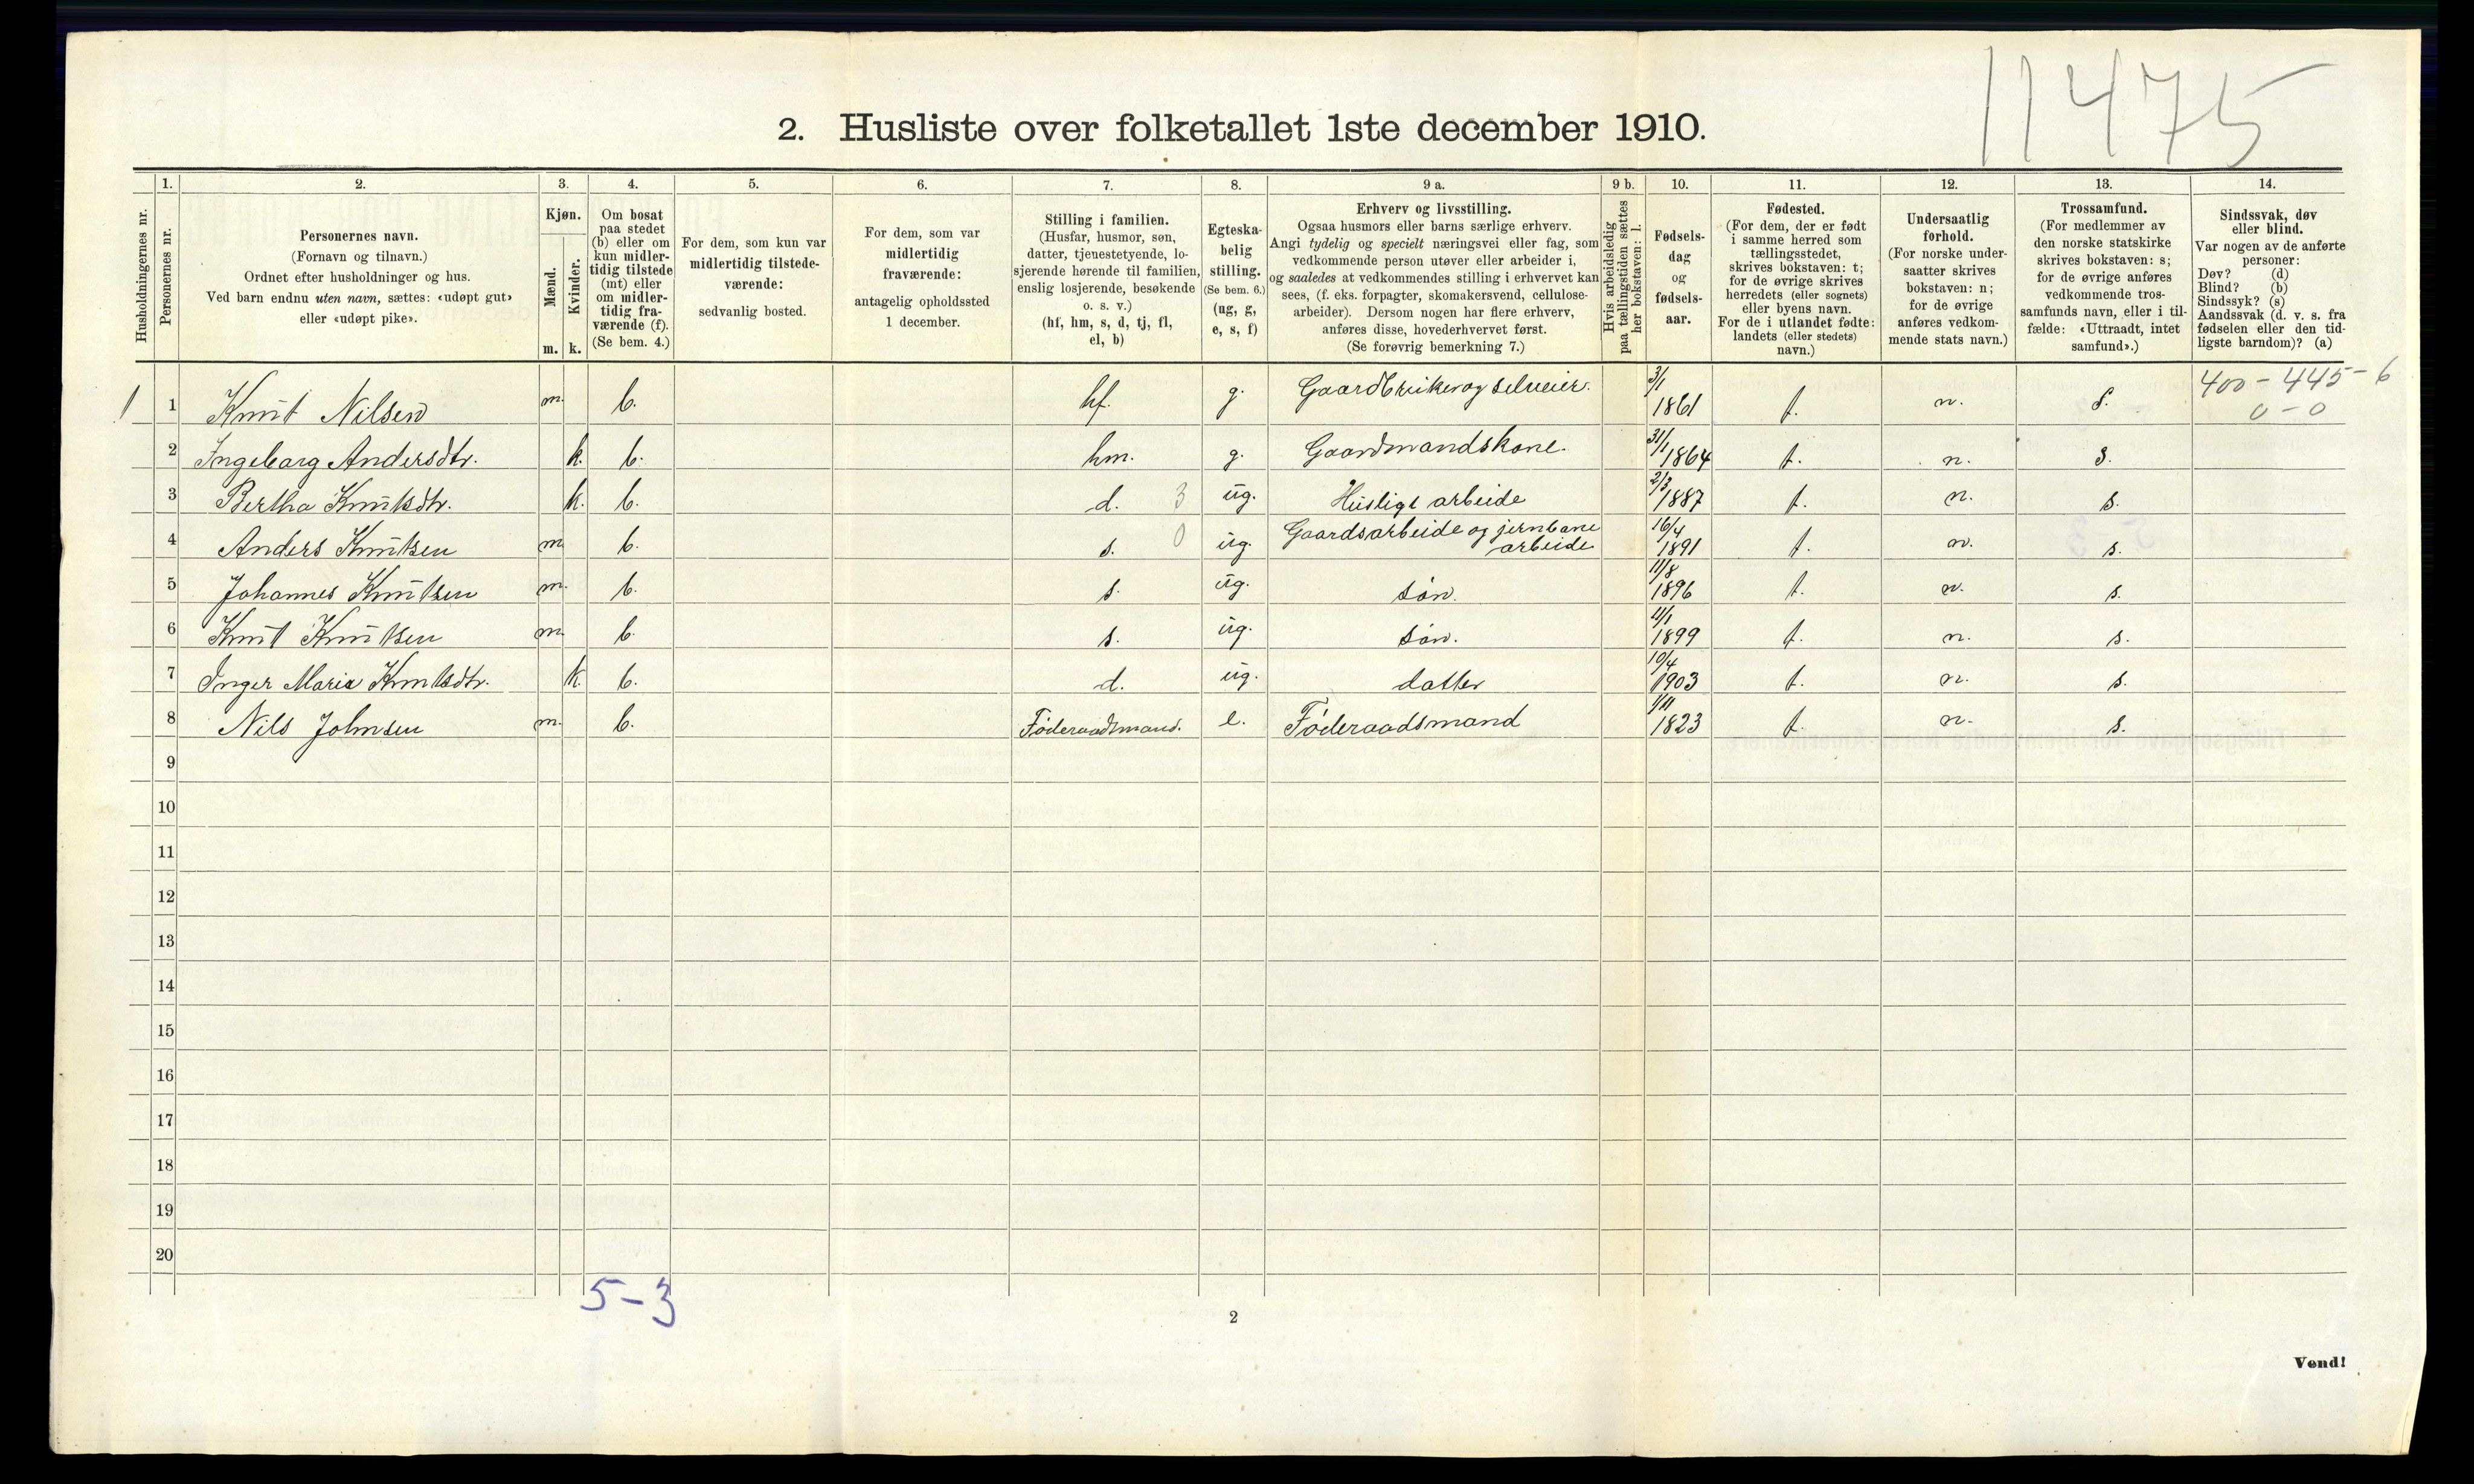 11475
2. Husliste over folketallet 1ste december 1910.
Husholdningernes nr.
1.
Personernes nr.
2.
Personernes navn.
(Fornavn og tilnavn.)
Ordnet efter husholdninger og hus.
Ved barn endnu uten navn, sættes: «udøpt gut»
eller «udøpt pike».
3.
Kjøn.
Mænd.
Kvinder.
m. k.
4.
Om bosat
paa stedet
(b) eller om
kun midler-
tidig tilstede
(mt) eller
om midler-
tidig fra-
værende (f).
(Se bem. 4.)
5.
For dem, som kun var
midlertidig tilstede-
værende:
sedvanlig bosted.
6.
For dem, som var
midlertidig
fraværende:
antagelig opholdssted
1 december.
7.
Stilling i familien.
(Husfar, husmor, søn,
datter, tjenestetyende, lo-
sjerende hørende til familien,
enslig losjerende, besøkende
o. s. v.)
(hf, hm, s, d, tj, fl,
el, b)
8.
Egteska-
belig
stilling.
(Se bem. 6.)
(ug, g,
e, s, f)
9 a.
Erhverv og livsstilling.
Ogsaa husmors eller barns særlige erhverv.
Angi tydelig og specielt næringsvei eller fag, som
vedkommende person utøver eller arbeider i,
og saaledes at vedkommendes stilling i erhvervet kan
sees, (f. eks. forpagter, skomakersvend, cellulose-
arbeider). Dersom nogen har flere erhverv,
anføres disse, hovederhvervet først.
(Se forøvrig bemerkning 7.)
9 b.
Hvis arbeidsledig
paa tællingstiden sættes
her bokstaven: l.
10.
Fødsels-
dag
og
fødsels-
aar.
11.
Fødested.
(For dem, der er født
i samme herred som
tællingsstedet,
skrives bokstaven: t;
for de øvrige skrives
herredets (eller sognets)
eller byens navn.
For de i utlandet fødte:
landets (eller stedets)
navn.)
12.
Undersaatlig
forhold.
(For norske under-
saatter skrives
bokstaven: n;
for de øvrige
anføres vedkom-
mende stats navn.)
13.
Trossamfund.
(For medlemmer av
den norske statskirke
skrives bokstaven: s;
for de øvrige anføres
vedkommende tros-
samfunds navn, eller i til-
fælde: «Uttraadt, intet
samfund».)
14.
Sindssvak, døv
eller blind.
Var nogen av de anførte
personer:
Døv? (d)
Blind? (b)
Sindssyk? (s)
Aandssvak (d. v. s. fra
fødselen eller den tid-
ligste barndom)? (a)
1 1 Knut Nilsen m. b. hf. g. Gaardbruker og selveier. 3/1 1861 t. n. s. 400 - 445 - 6
0 - 0
2 Ingeborg Andersdtr. k. b. hm. g. Gaardmandskone. 31/1 1864 t. n. s.
3 Bertha Knutsdtr. k. b. d. 3 ug. Husligt arbeide 2/3 1887 t. n. s.
4 Anders Knutsen m b. s. 0 ug. Gaardsarbeide og jernbane
arbeide 16/4 1891 t. n. s.
5 Johannes Knutsen m. b. s. ug. søn. 11/8 1896 t. n. s.
6 Knut Knutsen m. b. s. ug. søn. 4/1 1899 t. n. s.
7 Inger Marie Knutsdtr. k. b. d. ug. datter 10/4 1903 t. n. s.
8 Nils Johnsen m. b. Føderaadsmand. e. Føderaadsmand 1/11 1823 t. n. s.
9
10
11
12
13
14
15
16
17
18
19
20
5-3
2
Vend!